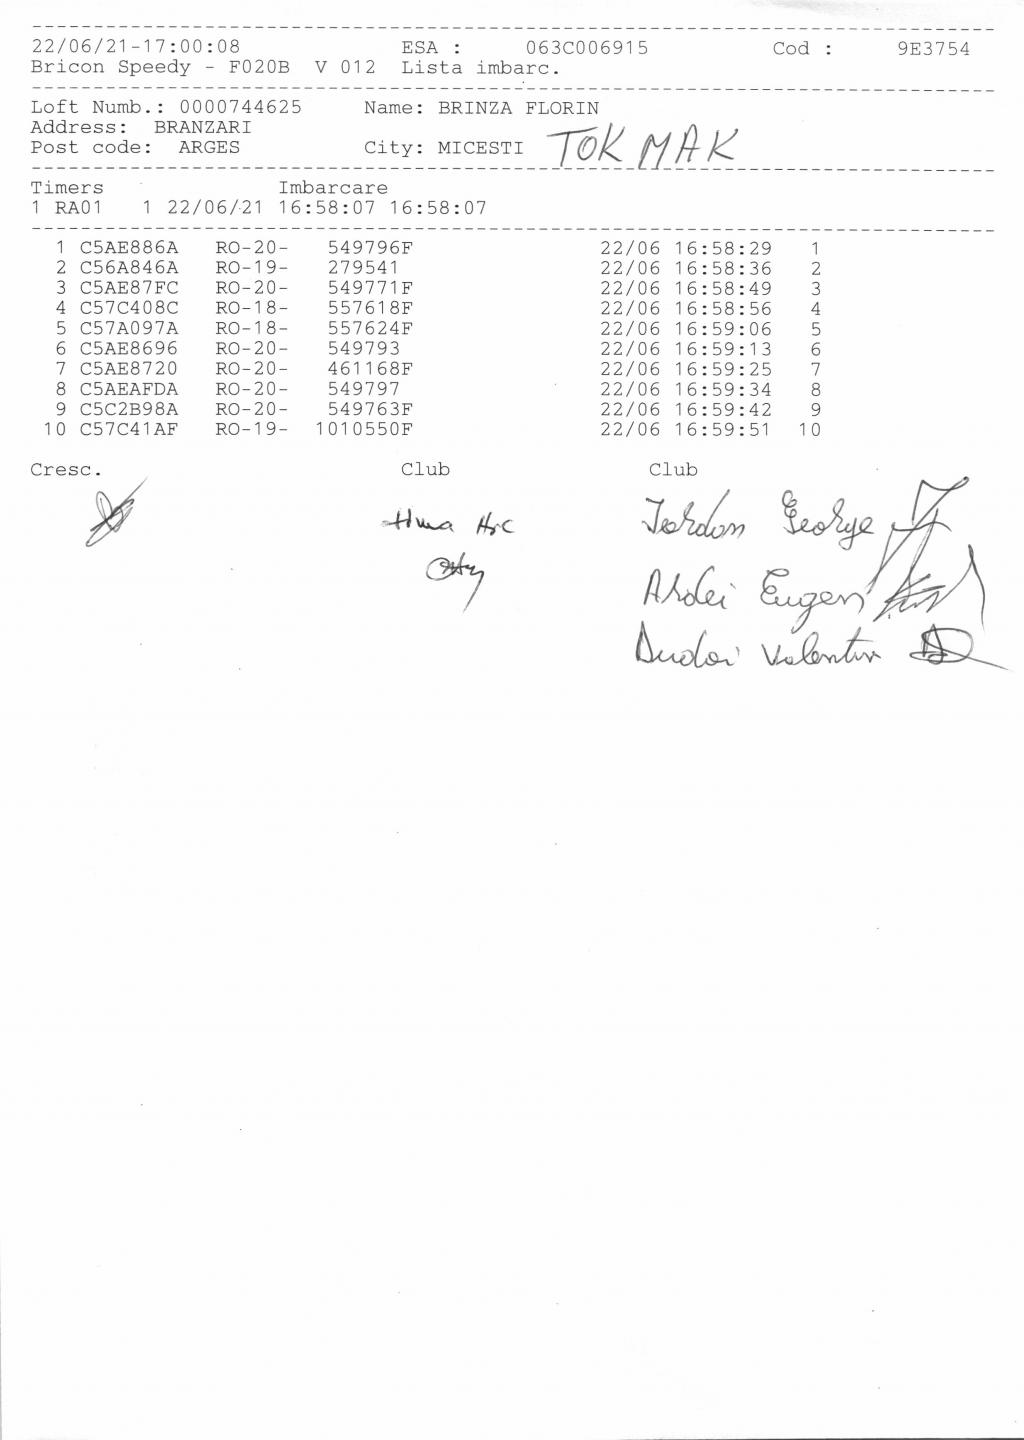 22/06/21-17:00:08 ESA : 063C006915 Cod : 9E3754
Bricon Speedy - F020B V 012 Lista imbarc.
Loft Numb.: 0000744625 Name: BRINZA FLORIN
Address: BRANZARI
Post code: ARGES City: MICESTI TOKMAK
Timers Imbarcare
1 RA01 1 22/06/21 16:58:07 16:58:07
1 C5AE886A RO-20- 549796F 22/06 16:58:29 1
2 C56A846A RO-19- 279541 22/06 16:58:36 2
3 C5AE87FC RO-20- 549771F 22/06 16:58:49 3
4 C57C408C RO-18- 557618F 22/06 16:58:56 4
5 C57A097A RO-18- 557624F 22/06 16:59:06 5
6 C5AE8696 RO-20- 549793 22/06 16:59:13 6
7 C5AE8720 RO-20- 461168F 22/06 16:59:25 7
8 C5AEAFDA RO-20- 549797 22/06 16:59:34 8
9 C5C2B98A RO-20- 549763F 22/06 16:59:42 9
10 C57C41AF RO-19- 1010550F 22/06 16:59:51 10
Cresc. Club Club
George
Ardei Eugen
Valentin